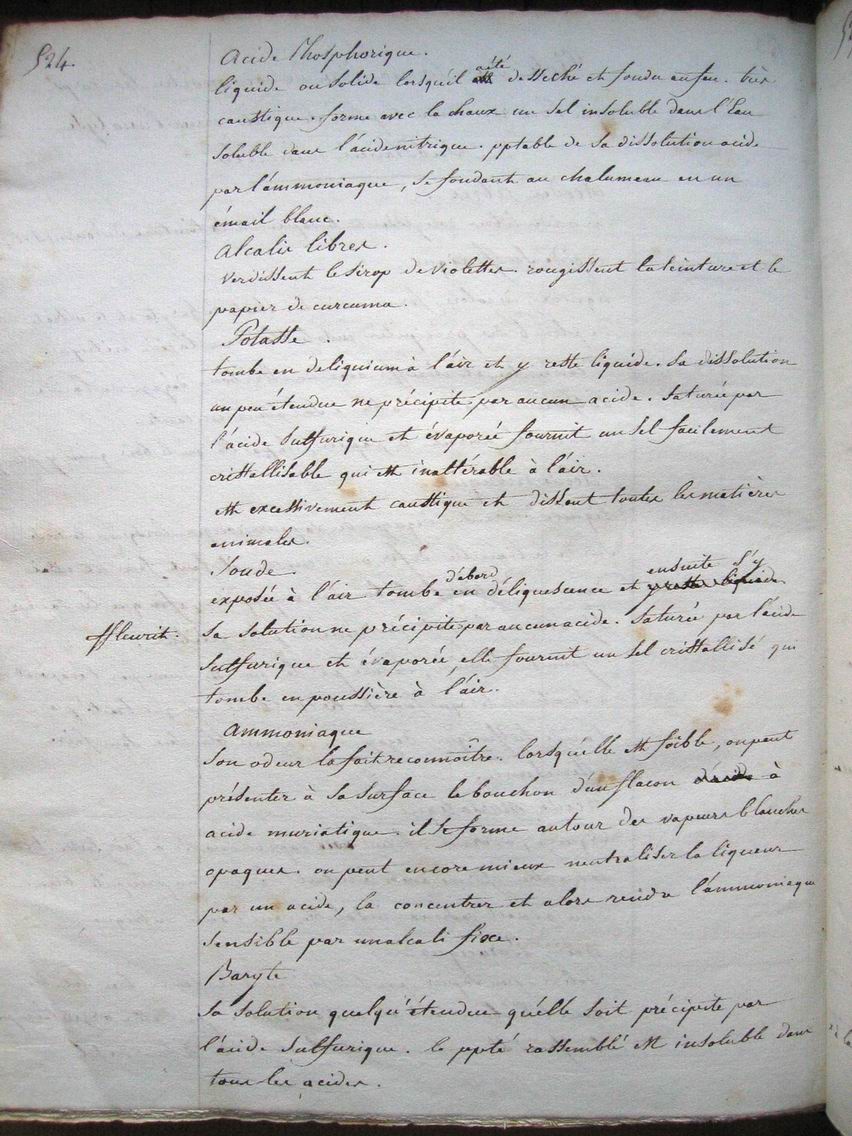 524.
Acide Phosphorique.
liquide ou solide lorsqu'il a été desseché et fondu au feu. très
caustique. forme avec la chaux un sel insoluble dans l'Eau
soluble dans l'acide nitrique. pptable de sa dissolution acide
par l'ammoniaque, se fondant au chalumeau en un
émail blanc.
Alcalis libres.
verdissent le sirop de violettes. rougissent la teinture et le
papier de curcuma.
Potasse.
tombe en deliquium à l'air et y reste liquide. Sa dissolution
un peu étendue ne précipite par aucun acide. Saturée par
l'acide sulfurique et évaporée fournit un sel facilement
cristallisable qui est inaltérable à l'air.
est excessivement caustique et dissout toutes les matières
animales.
Soude.
exposée à l'air tombe d'abord en déliquescence et y reste liquide ensuite s'y
effleurit.
Sa solution ne précipite par aucun acide. Saturée par l'acide
sulfurique et évaporée, elle fournit un sel cristallisé qui
tombe en poussière à l'air.
Ammoniaque
Son odeur la fait reconnoître. lorsqu'elle est foible, on peut
présenter à sa surface le bouchon d'un flacon d'acide à
acide muriatique. il se forme autour des vapeurs blanches
opaques. on peut encore mieux neutraliser la liqueur
par un acide, la concentrer et alors rendre l'ammoniaque
sensible par un alcali fixe.
Baryte
Sa solution quelqu'étendue qu'elle soit précipite par
l'acide sulfurique. le ppté rassemblé est insoluble dans
tous les acides.